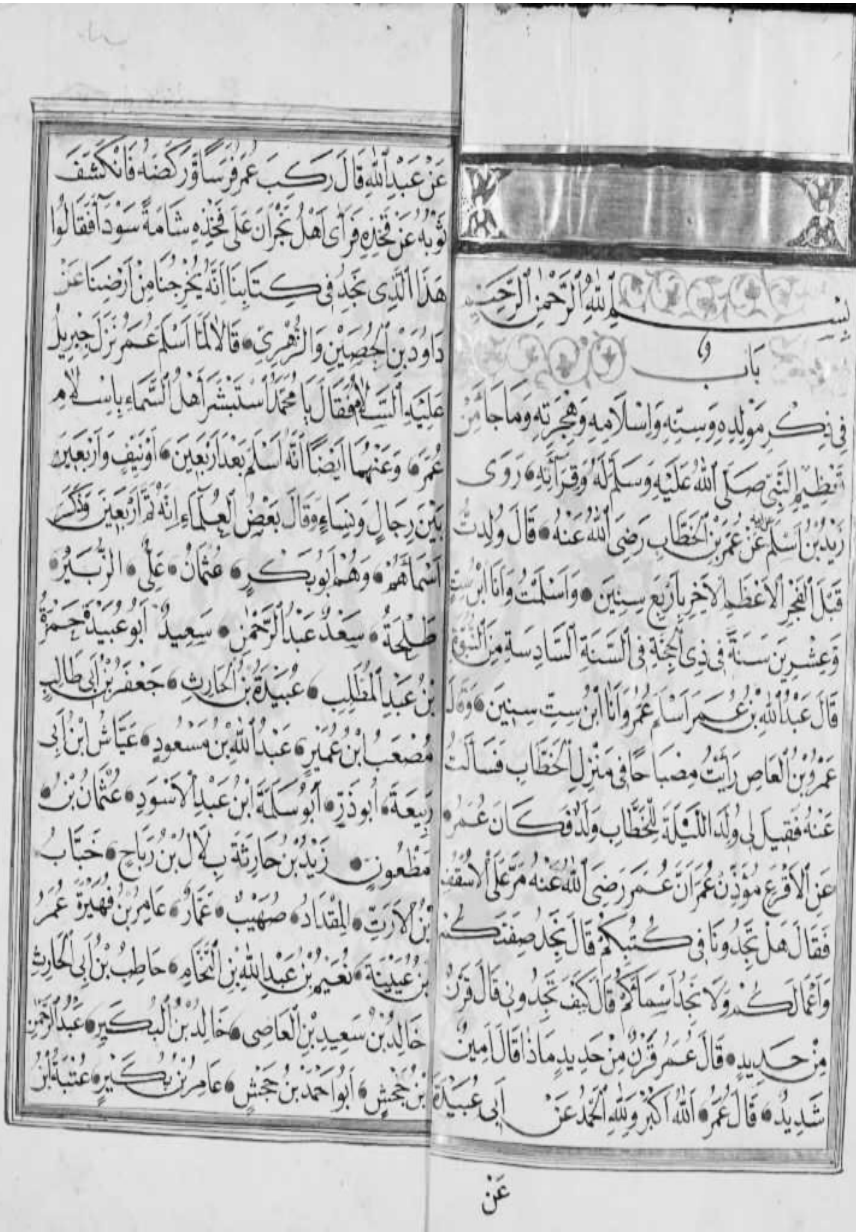 بِسْمِ اللهِ الرَّحْمٰنِ الرَّحِيمِ
بَاب
فِي ذِكْرِ مَوْلِدِهِ وَسِنِّهِ وَاِسْلَامِهِ وَهِجْرَتِهِ وَمَا جَا مِنْ
تَعْظِيمِ النَّبِيِّ صَلَّى اللهُ عَلَيْهِ وَسَلَّمَ لَهُ وَقِرَآتِهِ رَوَى
زَيْدُ بْنُ اَسْلَمَ عَنْ عُمَرَ بْنِ الْخَطَّابِ رَضِيَ اللهُ عَنْهُ قَالَ وُلِدْتُ
قَبْلَ الْفَجْرِ الْاَعْظَمِ الْاٰخِرِ بِاَرْبَعِ سِنِينَ وَاَسْلَمْتُ وَاَنَا ابْنُ سِتٍّ
وَعِشْرِينَ سَنَةً فِي ذِي الْحِجَّةِ فِي السَّنَةِ السَّادِسَةِ مِنَ النُّبُوَّةِ
قَالَ عَبْدُ اللهِ بْنُ عُمَرَ اَسْلَمَ عُمَرُ وَاَنَا ابْنُ سِتِّ سِنِينَ وَقَالَ
عَمْرُو بْنُ الْعَاصِ رَاَيْتُ مِصْبَاحًا فِي مَنْزِلِ الْخَطَّابِ فَسَاَلْتُ
عَنْهُ فَقِيلَ لِي وُلِدَ اللَّيْلَةَ لِلْخَطَّابِ وَلَدٌ فَكَانَ عُمَرُ
عَنِ الْاَقْرَعِ مُؤَذِّنِ عُمَرَ اَنَّ عُمَرَ رَضِيَ اللهُ عَنْهُ مَرَّ عَلَى الْاُسْقُفِ
فَقَالَ هَلْ تَجِدُونَا فِي كُتُبِكُمْ قَالَ نَجِدُ صِفَتَكُمْ
وَاَعْمَالَكُمْ وَلَا نَجِدُ اَسْمَائَكُمْ قَالَ كَيْفَ تَجِدُونِي قَالَ قَرْنٌ
مِنْ حَدِيدٍ قَالَ عُمَرُ قَرْنٌ مِنْ حَدِيدٍ مَاذَا قَالَ اَمِينٌ
شَدِيدٌ قَالَ عُمَرُ اَللهُ اَكْبَرُ وَلِلّٰهِ الْحَمْدُ عَنْ اَبِي عُبَيْدَةَ
عَنْ
عَنْ عَبْدِ اللهِ قَالَ رَكِبَ عُمَرُ فَرَسًا وَرَكَضَهُ فَانْكَشَفَ
ثَوْبُهُ عَنْ فَخِذِهِ فَرَاٰى اَهْلُ نَجْرَانَ عَلَى فَخِذِهِ شَامَةً سَوْدَآءَ فَقَالُوا
هَذَا الَّذِي نَجِدُ فِي كِتَابِنَا اَنَّهُ يُخْرِجُنَا مِنْ اَرْضِنَا عَنْ
دَاوُدَ بْنِ الْحُصَيْنِ وَالزُّهْرِيِّ قَالَا لَمَّا اَسْلَمَ عُمَرُ نَزَلَ جِبْرِيلُ
عَلَيْهِ السَّلَامُ فَقَالَ يَا مُحَمَّدُ اسْتَبْشَرَ اَهْلُ السَّمَاءِ بِاِسْلَامِ
عُمَرَ وَعَنْهُمَا اَيْضًا اَنَّهُ اَسْلَمَ بَعْدَ اَرْبَعِينَ اَوْ نَيِّفٍ وَاَرْبَعِينَ
بَيْنَ رِجَالٍ وَنِسَاءٍ وَقَالَ بَعْضُ الْعُلَمَاءِ اِنَّهُ تَمَّ اَرْبَعِينَ وَذَكَرَ
اَسْمَائَهُمْ وَهُمْ اَبُو بَكْرٍ عُثْمَانُ عَلِيٌّ الزُّبَيْرُ
طَلْحَةُ سَعْدٌ عَبْدُ الرَّحْمٰنِ سَعِيدٌ اَبُو عُبَيْدَةَ حَمْزَةُ
بْنُ عَبْدِ الْمُطَّلِبِ عُبَيْدَةُ بْنُ الْحَارِثِ جَعْفَرُ بْنُ اَبِي طَالِبٍ
مُصْعَبُ ابْنُ عُمَيْرٍ عَبْدُ اللهِ بْنُ مَسْعُودٍ عَيَّاشُ ابْنُ اَبِي
رَبِيعَةَ اَبُو ذَرٍّ اَبُو سَلَمَةَ ابْنُ عَبْدِ الْاَسْوَدِ عُثْمَانُ بْنُ
مَظْعُونٍ زَيْدُ بْنُ حَارِثَةَ بِلَالُ بْنُ رَبَاحٍ خَبَّابُ
بْنُ الْاَرَتِّ الْمِقْدَادُ صُهَيْبٌ عَمَّارٌ عَامِرُ بْنُ فُهَيْرَةَ عَمْرُو
بْنُ عُيَيْنَةَ نُعَيْمُ بْنُ عَبْدِ اللهِ بْنِ النَّحَّامِ حَاطِبُ بْنُ اَبِي الْحَارِثِ
خَالِدُ بْنُ سَعِيدِ بْنِ الْعَاصِي خَالِدُ بْنُ الْبُكَيْرِ عَبْدُ الرَّحْمٰنِ
بْنُ جَحْشٍ اَبُو اَحْمَدَ بْنُ جَحْشٍ عَامِرُ بْنُ بُكَيْرٍ عُتْبَةُ ابْنُ